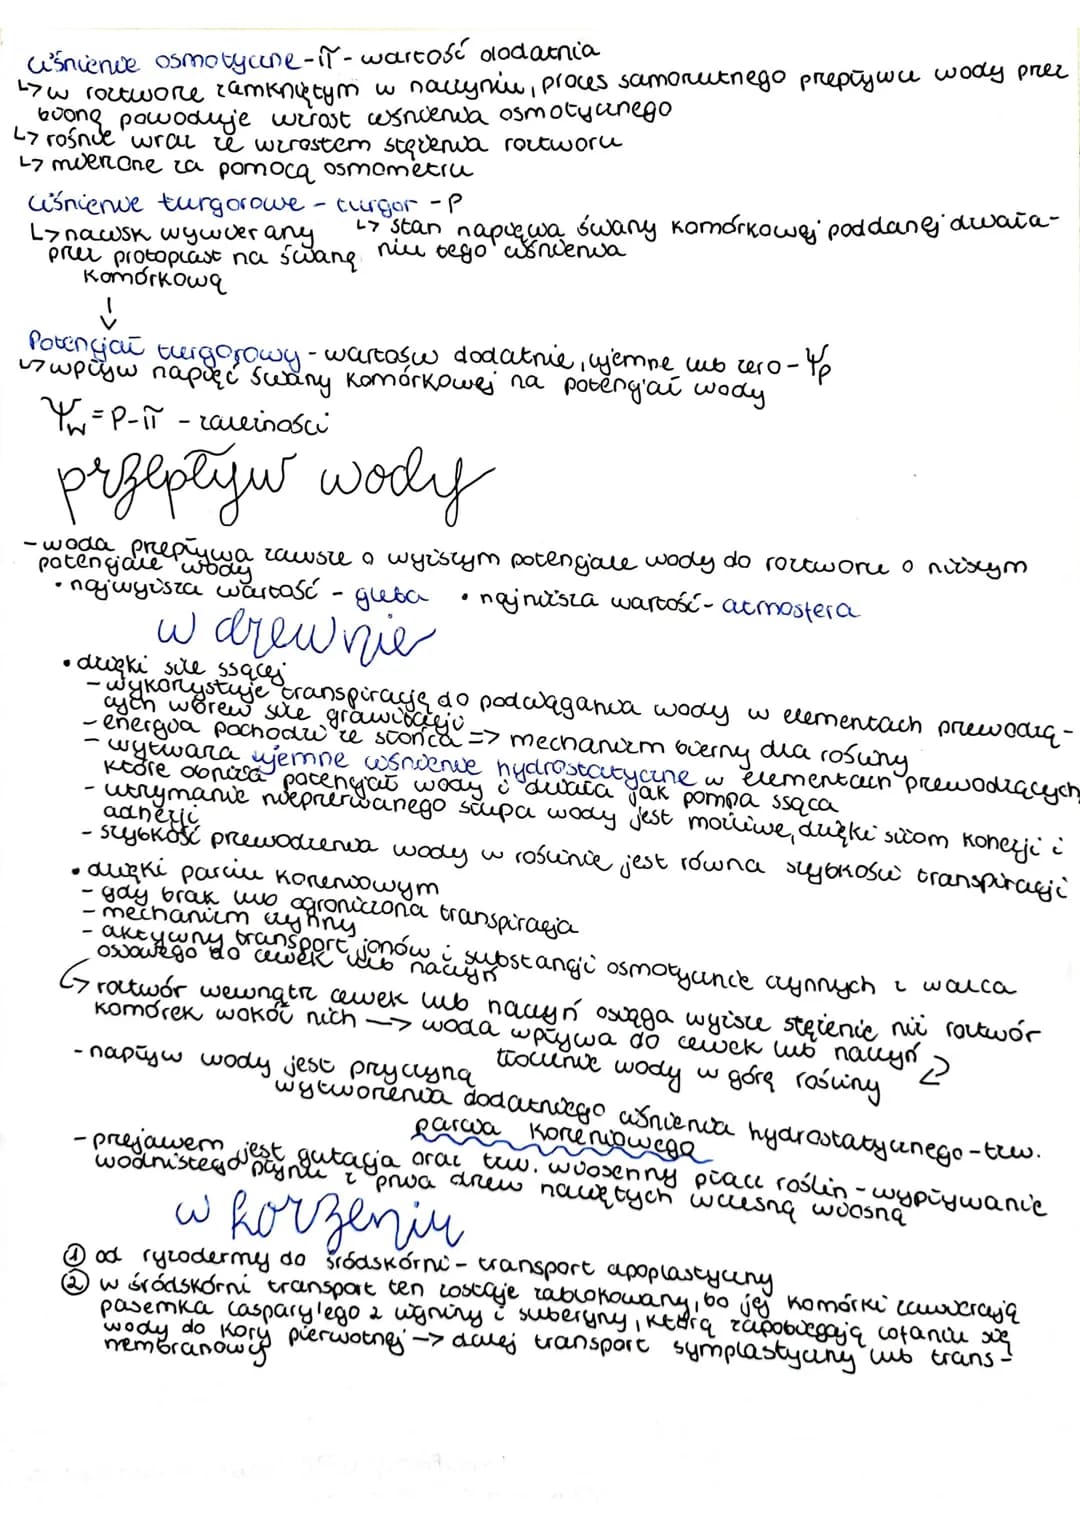 ciśnienie osmotyczne - π - wartość dodatnia
↳ w roztworze zamkniętym w naczyniu, proces samorzutnego przepływu wody przez
błonę powoduje wzrost ciśnienia osmotycznego
↳ rośnie wraz ze wzrostem stężenia roztworu
↳ mierzone za pomocą osmometru
ciśnienie turgorowe - turgor - P
↳ nacisk wywierany przez protoplast na ścianę komórkową
↳ stan napięcia ściany komórkowej poddanej działaniu tego ciśnienia
↓
Potencjał turgorowy - wartości dodatnie, ujemne lub zero - Ψp
↳ wpływ napięć ściany komórkowej na potencjał wody
Ψw = P - π - zależności
przepływ wody
- woda przepływa zawsze o wyższym potencjale wody do roztworu o niższym
potencjale wody
• najwyższa wartość - gleba • najniższa wartość - atmosfera
w drewnie
• dzięki sile ssącej
- wykorzystuje transpirację do podciągania wody w elementach przewodzą-
cych wbrew sile grawitacji
- energia pochodzi ze słońca => mechanizm bierny dla rośliny
- wytwarza ujemne ciśnienie hydrostatyczne w elementach przewodzących,
które obniża potencjał wody i działa jak pompa ssąca
- utrzymanie nieprzerwanego słupa wody jest możliwe, dzięki siłom kohezji i
adhezji
- szybkość przewodzenia wody w roślinie jest równa szybkości transpiracji
• dzięki parciu korzeniowym
- gdy brak lub ograniczona transpiracja
- mechanizm czynny
- aktywny transport jonów i substancji osmotycznie czynnych z walca
osiowego do cewek lub naczyń
↳ roztwór wewnątrz cewek lub naczyń osiąga wyższe stężenie niż roztwór
komórek wokół nich → woda wpływa do cewek lub naczyń
tłoczenie wody w górę rośliny
- napływ wody jest przyczyną
wytworzenia dodatniego ciśnienia hydrostatycznego - tzw.
parcia korzeniowego
- przejawem jest gutacja oraz tzw. wiosenny płacz roślin - wypływanie
wodnistego płynu z pnia drzew naciętych wczesną wiosną
w korzeniu
① od ryzodermy do śródskórni - transport apoplastyczny
② w śródskórni transport ten zostaje zablokowany, bo jej komórki zawierają
pasemka Caspary'ego z ligniny i suberyny, którą zapobiegają cofaniu się
wody do kory pierwotnej → dalej transport symplastyczny lub trans-
membranowy